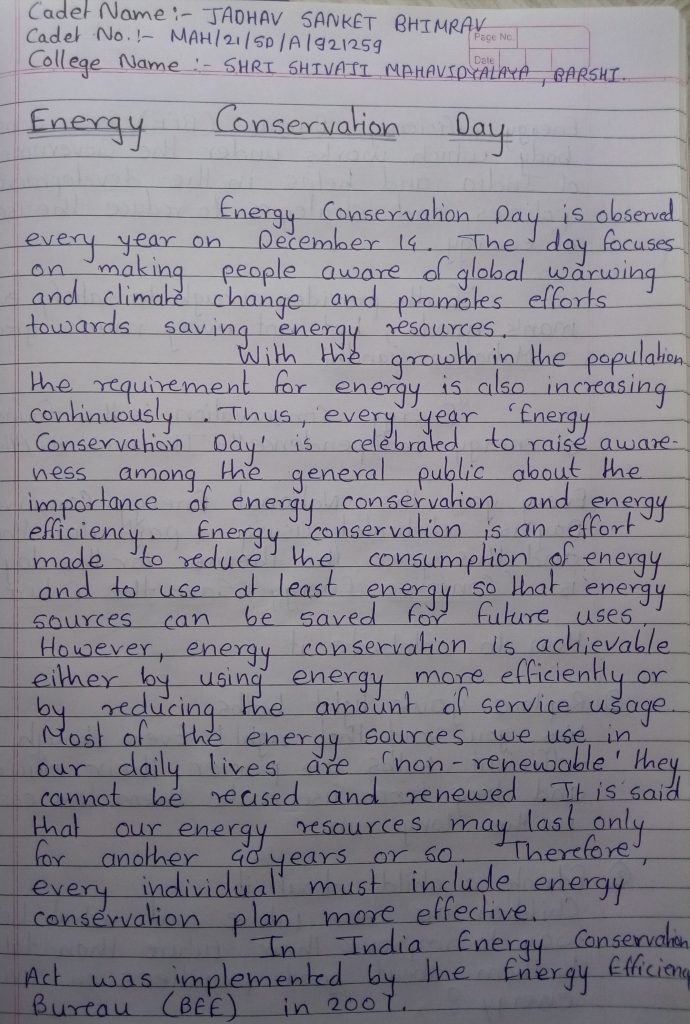 Cadet Name :- JADHAV SANKET BHIMRAV
Cadet No. :- MAH/21/SD/A/921259
Page No.
Date
College Name :- SHRI SHIVAJI MAHAVIDYALAYA, BARSHI.
Energy Conservation Day
Energy Conservation Day is observed
every year on December 14. The day focuses
on making people aware of global warwing
and climate change and promotes efforts
towards saving energy resources.
With the growth in the population
the requirement for energy is also increasing
continuously. Thus, every year 'Energy
Conservation Day' is celebrated to raise aware-
ness among the general public about the
importance of energy conservation and energy
efficiency. Energy conservation is an effort
made to reduce the consumption of energy
and to use at least energy so that energy
sources can be saved for future uses.
However, energy conservation is achievable
either by using energy more efficiently or
by reducing the amount of service usage.
Most of the energy sources we use in
our daily lives are 'non-renewable' they
cannot be reased and renewed. It is said
that our energy resources may last only
for another 40 years or so. Therefore,
every individual must include energy
conservation plan more effective.
In India Energy Conservation
Act was implemented by the Energy Efficiency
Bureau (BEE) in 2001.